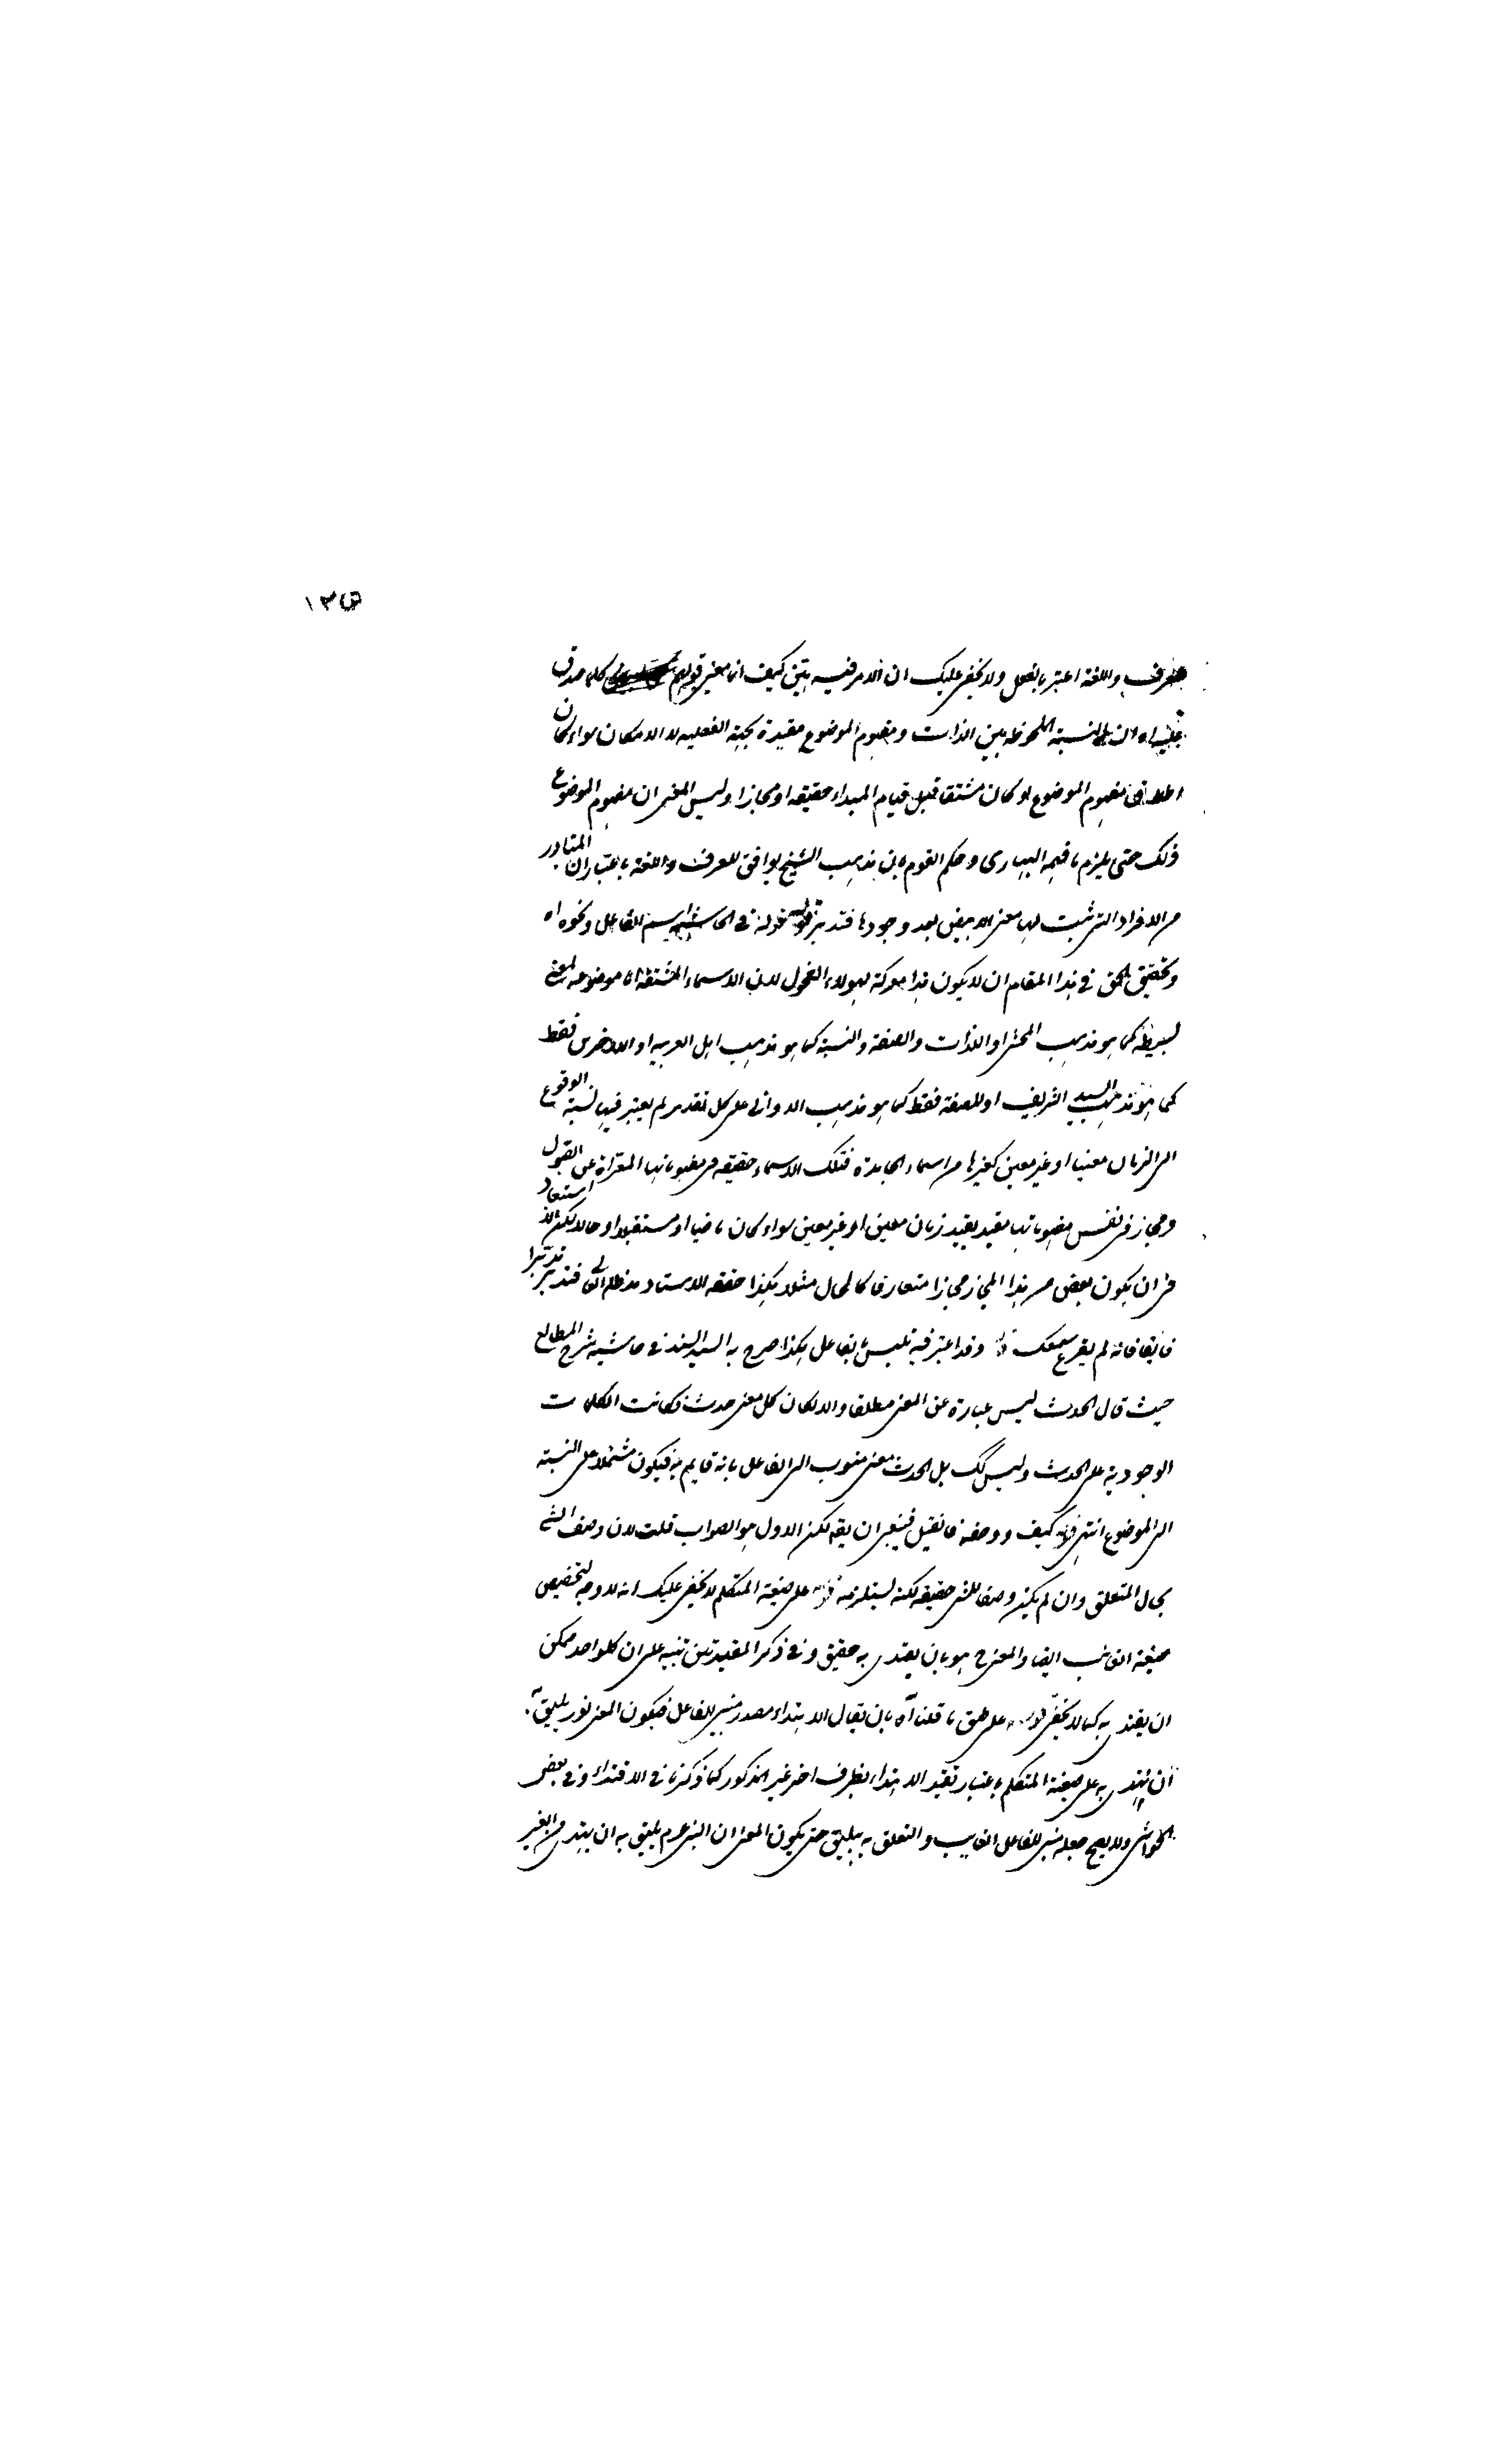 ص١٣
للعرف واللغة اعتبر بالفعل ولا يخفى عليك ان الامر فيه بين كيف انما معنى قولهم كلما صدق
عليه اه ان النسبة الملحوظة بين الذات ومفهوم الموضوع مقيدة بجهة الفعلية لا الامكان سواء كان
اطلاق مفهوم الموضوع لو كان مشتقا قبل قيام المبداء حقيقة او مجازا وليس المعنى ان مفهوم الموضوع
ذلك حتى يلزم ما فهمه البهارى وحكم القوم بان مذهب الشيخ يوافق للعرف واللغة باعتبار ان المتبادر
من الافراد التى ثبت لها معنى الابيض بعد وجودها فتدبر قوله فى الحاشية اسم الفاعل ونحوه اه
وتحقيق الحق فى هذا المقام ان لا يكون هذا معركة لهولاء الفحول لان الاسماء المشتقة اه موضوعه لمعنى
بسيط كما هو مذهب المحشى او الذات والصفة والنسبة كما هو مذهب اهل العربية او الاخرين فقط
كما هو مذهب السيد الشريف او للصفة فقط كما هو مذهب الدوانى على كل تقدير لم يعتبر فيها نسبة الوقوع
الى الزمان معينا او غير معين كغيرها من اسماء الجامدة فتلك الاسماء حقيقة فى مفهوماتها المعراة عن القول
ومجاز فى نفس مفهوماتها مقيد بقيد زمان معين او غير معين سواء كان ماضيا او مستقبلا او حالا لكن لا استبعاد
فى ان يكون بعض من هذا المجاز مجازا متعارفا كالحال مثلا هكذا حققه الاستاد مد ظله العالى فتدبر تدبرا
فائقا فانه لم يقرع سمعك قوله وقد اعتبر فيه تلبس بالفاعل هكذا صرح به السيد السند فى حاشية شرح المطالع
حيث قال الحدث ليس عبارة عن المعنى مطلقا والا لكان كل معنى حدث وكانت الكلمات
الوجودية على الحدث وليس كك بل الحدث معنى منسوب الى الفاعل بانه قايم به فيكون مشتملا على النسبة
الى الموضوع انتهى قوله كيف ووصف فانقيل فينبغى ان يقه لكن الاول هو الصواب قلت لان وصف الشئ
بحال المتعلق وان لم يكن وصفا للشئ حقيقة لكنه يستلزمه قوله على صيغة المتكلم لا يخفى عليك انه لا وجه لتخصيص
صيغة الغائب ايضا والمعنى ح هو بان يقتدى به حقيق وفى ذكر المقيدتين تنبيه على ان كل واحد ممكن
ان يقتدى به كما لا يخفى قوله على طبق ما قلنا اه بان يقال الابتداء مصدر مبنى للفاعل فيكون المعنى نور يليق
ان نبتدى به على صيغة المتكلم باعتبار تقيد الابتداء بظرف اخر غير المذكور كما ذكرنا فى الاقتداء وفى بعض
الحواشى ولا يصح جعله مبنى للفاعل الغايب والتعلق به بيليق حتى يكون المعنى ان النبى عم يليق به ان يبتدى من الغير